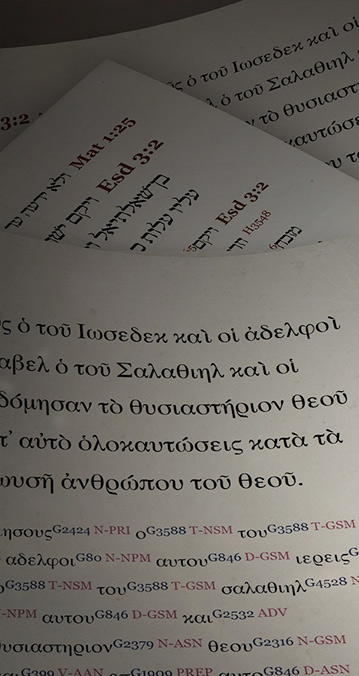 ς ὁ τοῦ Ιωσεδεκ καὶ οἱ
3:2 λ ὁ τοῦ Σαλαθιηλ
ν τὸ θυσιαστ
καυτώσε
Mat 1:25 ולא ידעה עד
Esd 3:2 ויקם ישו
בן־שאלתיאל
עליו עלות
Esd 3:2 ויקם
H3548
ς ὁ τοῦ Ιωσεδεκ καὶ οἱ ἀδελφοὶ
αβελ ὁ τοῦ Σαλαθιηλ καὶ οἱ
δόμησαν τὸ θυσιαστήριον θεοῦ
τ’ αὐτὸ ὁλοκαυτώσεις κατὰ τὰ
ωυσῆ ἀνθρώπου τοῦ θεοῦ.
ησουςG2424 N-PRI οG3588 T-NSM τουG3588 T-GSM
αδελφοιG80 N-NPM αυτουG846 D-GSM ιερειςG
οG3588 T-NSM τουG3588 T-GSM σαλαθιηλG4528 N
-NPM αυτουG846 D-GSM καιG2532 ADV
υσιαστηριονG2379 N-ASN θεουG2316 N-GSM
G399 V-AAN επG1909 PREP αυτοG846 D-ASN